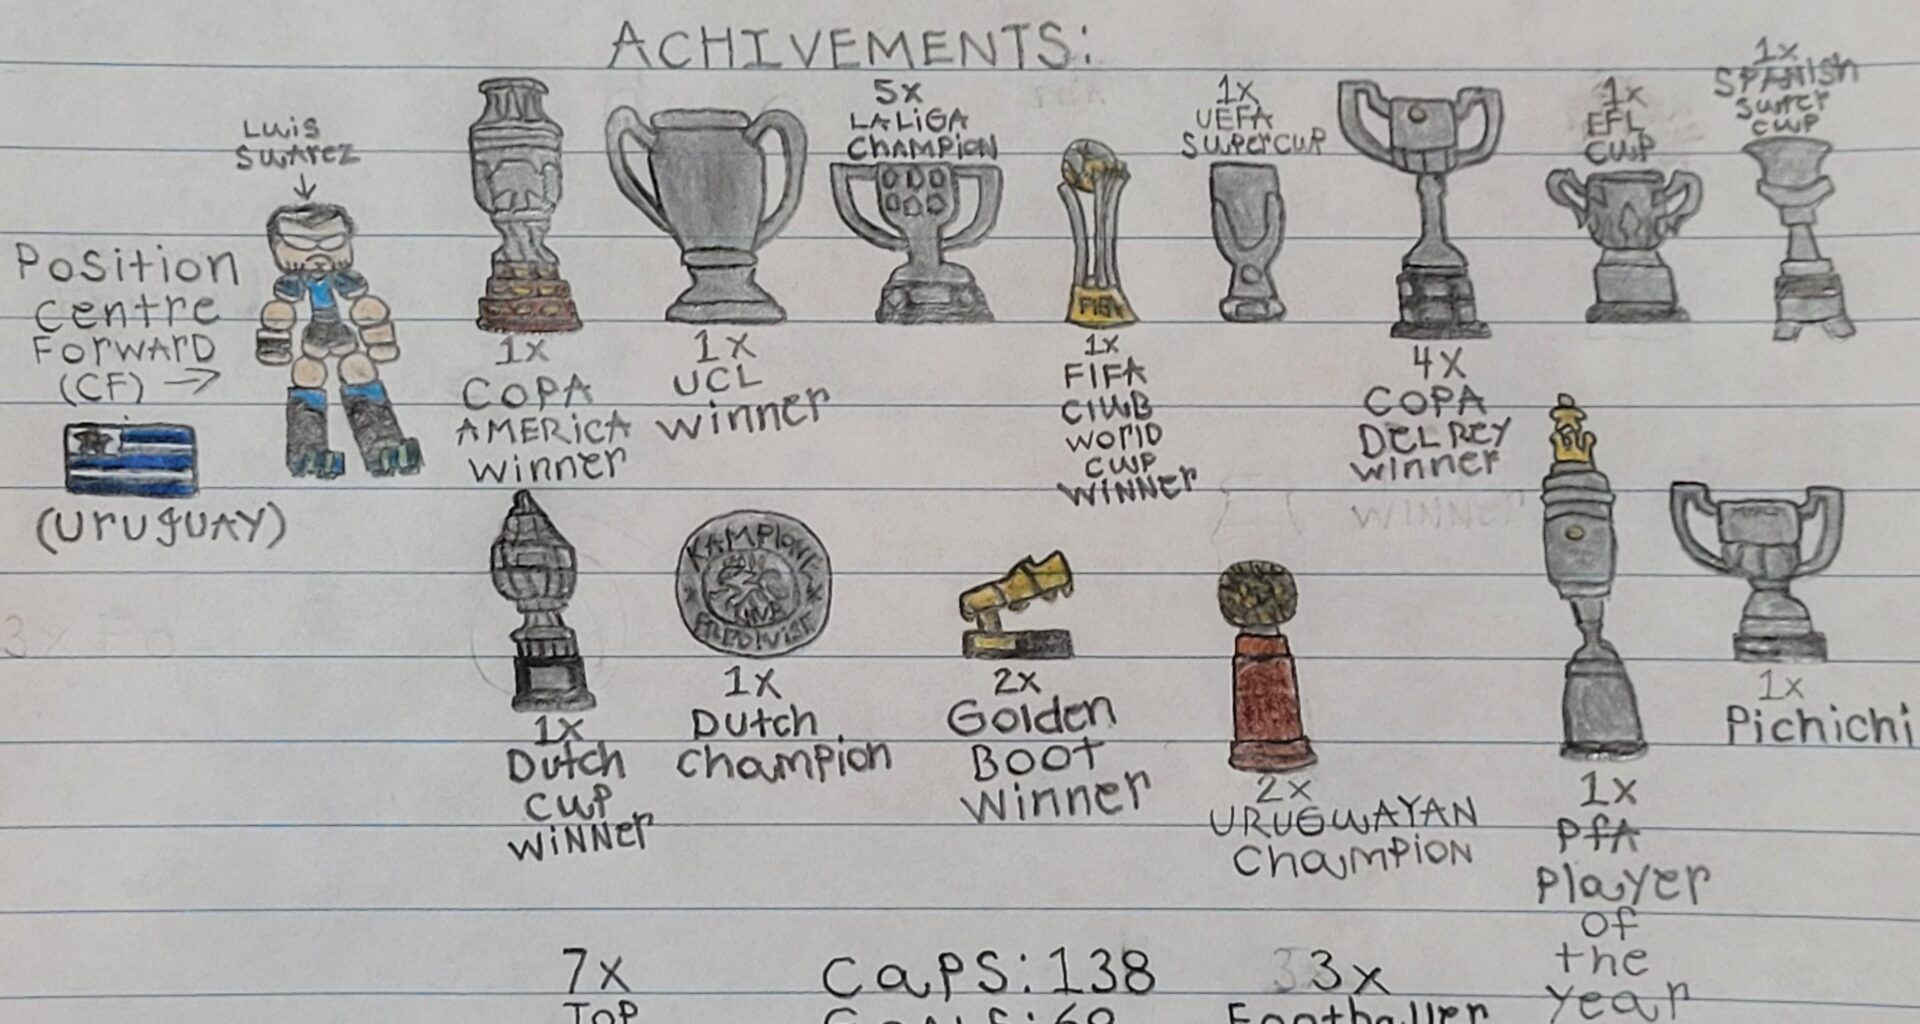 ACHIVEMENTS:
Luis
Suarez
Position
Centre
Forward
(CF)
(Uruguay)
1x
COPA
AMERICA
Winner
1x
UCL
Winner
5x
LALIGA
CHAMPION
FIFA
1x
FIFA
Club
World
Cup
WINNER
1x
UEFA
Supercup
4x
COPA
DEL REY
Winner
WINNER
1x
EFL
CUP
1x
SPANISH
Super
Cup
1x
Dutch
Cup
WINNER
KAMPIOEN
1x
Dutch
Champion
2x
Golden
BOOT
Winner
2x
URUGUAYAN
Champion
1x
PFA
Player
of
the
year
1x
Pichichi
7x
TOP
Caps: 138
Goals: 69
3x
Footballer